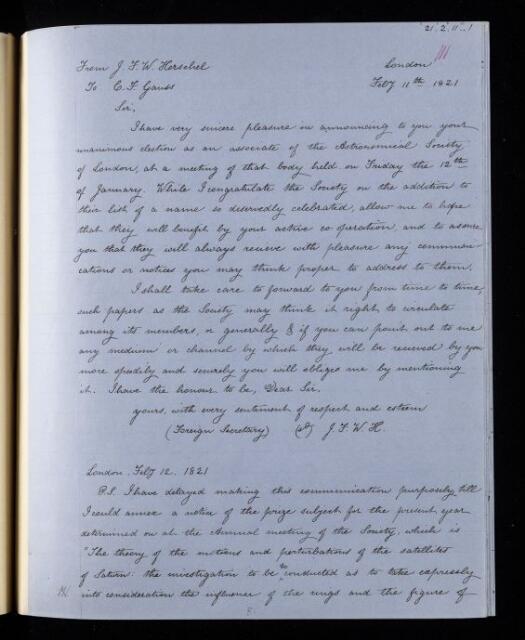 21. 2. 11. 1
From J. F. W. Herschel London
To C. F. Gauss Feby 11th 1821
Sir,
I have very sincere pleasure in announcing to you your
unanimous election as an associate of the Astronomical Society
of London, at a meeting of that body held on Friday the 12th
of January. While I congratulate the Society on the addition to
their list of a name so deservedly celebrated, allow me to hope
that they will benefit by your active co operation, and to assure
you that they will always receive with pleasure any communi-
cations or notices you may think proper to address to them.
I shall take care to forward to you from time to time,
such papers as the Society may think it right to circulate
among its members, or generally & if you can point out to me
any medium or channel by which they will be received by you
more speedily and securely you will oblige me by mentioning
it. I have the honour to be, Dear Sir,
yours, with every sentiment of respect and esteem
(Foreign Secretary) J. F. W. H.
London. Feby 12. 1821
P.S. I have delayed making this communication purposely till
I could annex a notice of the prize subject for the present year
determined on at the Annual meeting of the Society, which is
"The theory of the motions and perturbations of the satellites
of Saturn: the investigation to be so conducted as to take expressly
into consideration the influence of the rings and the figure of